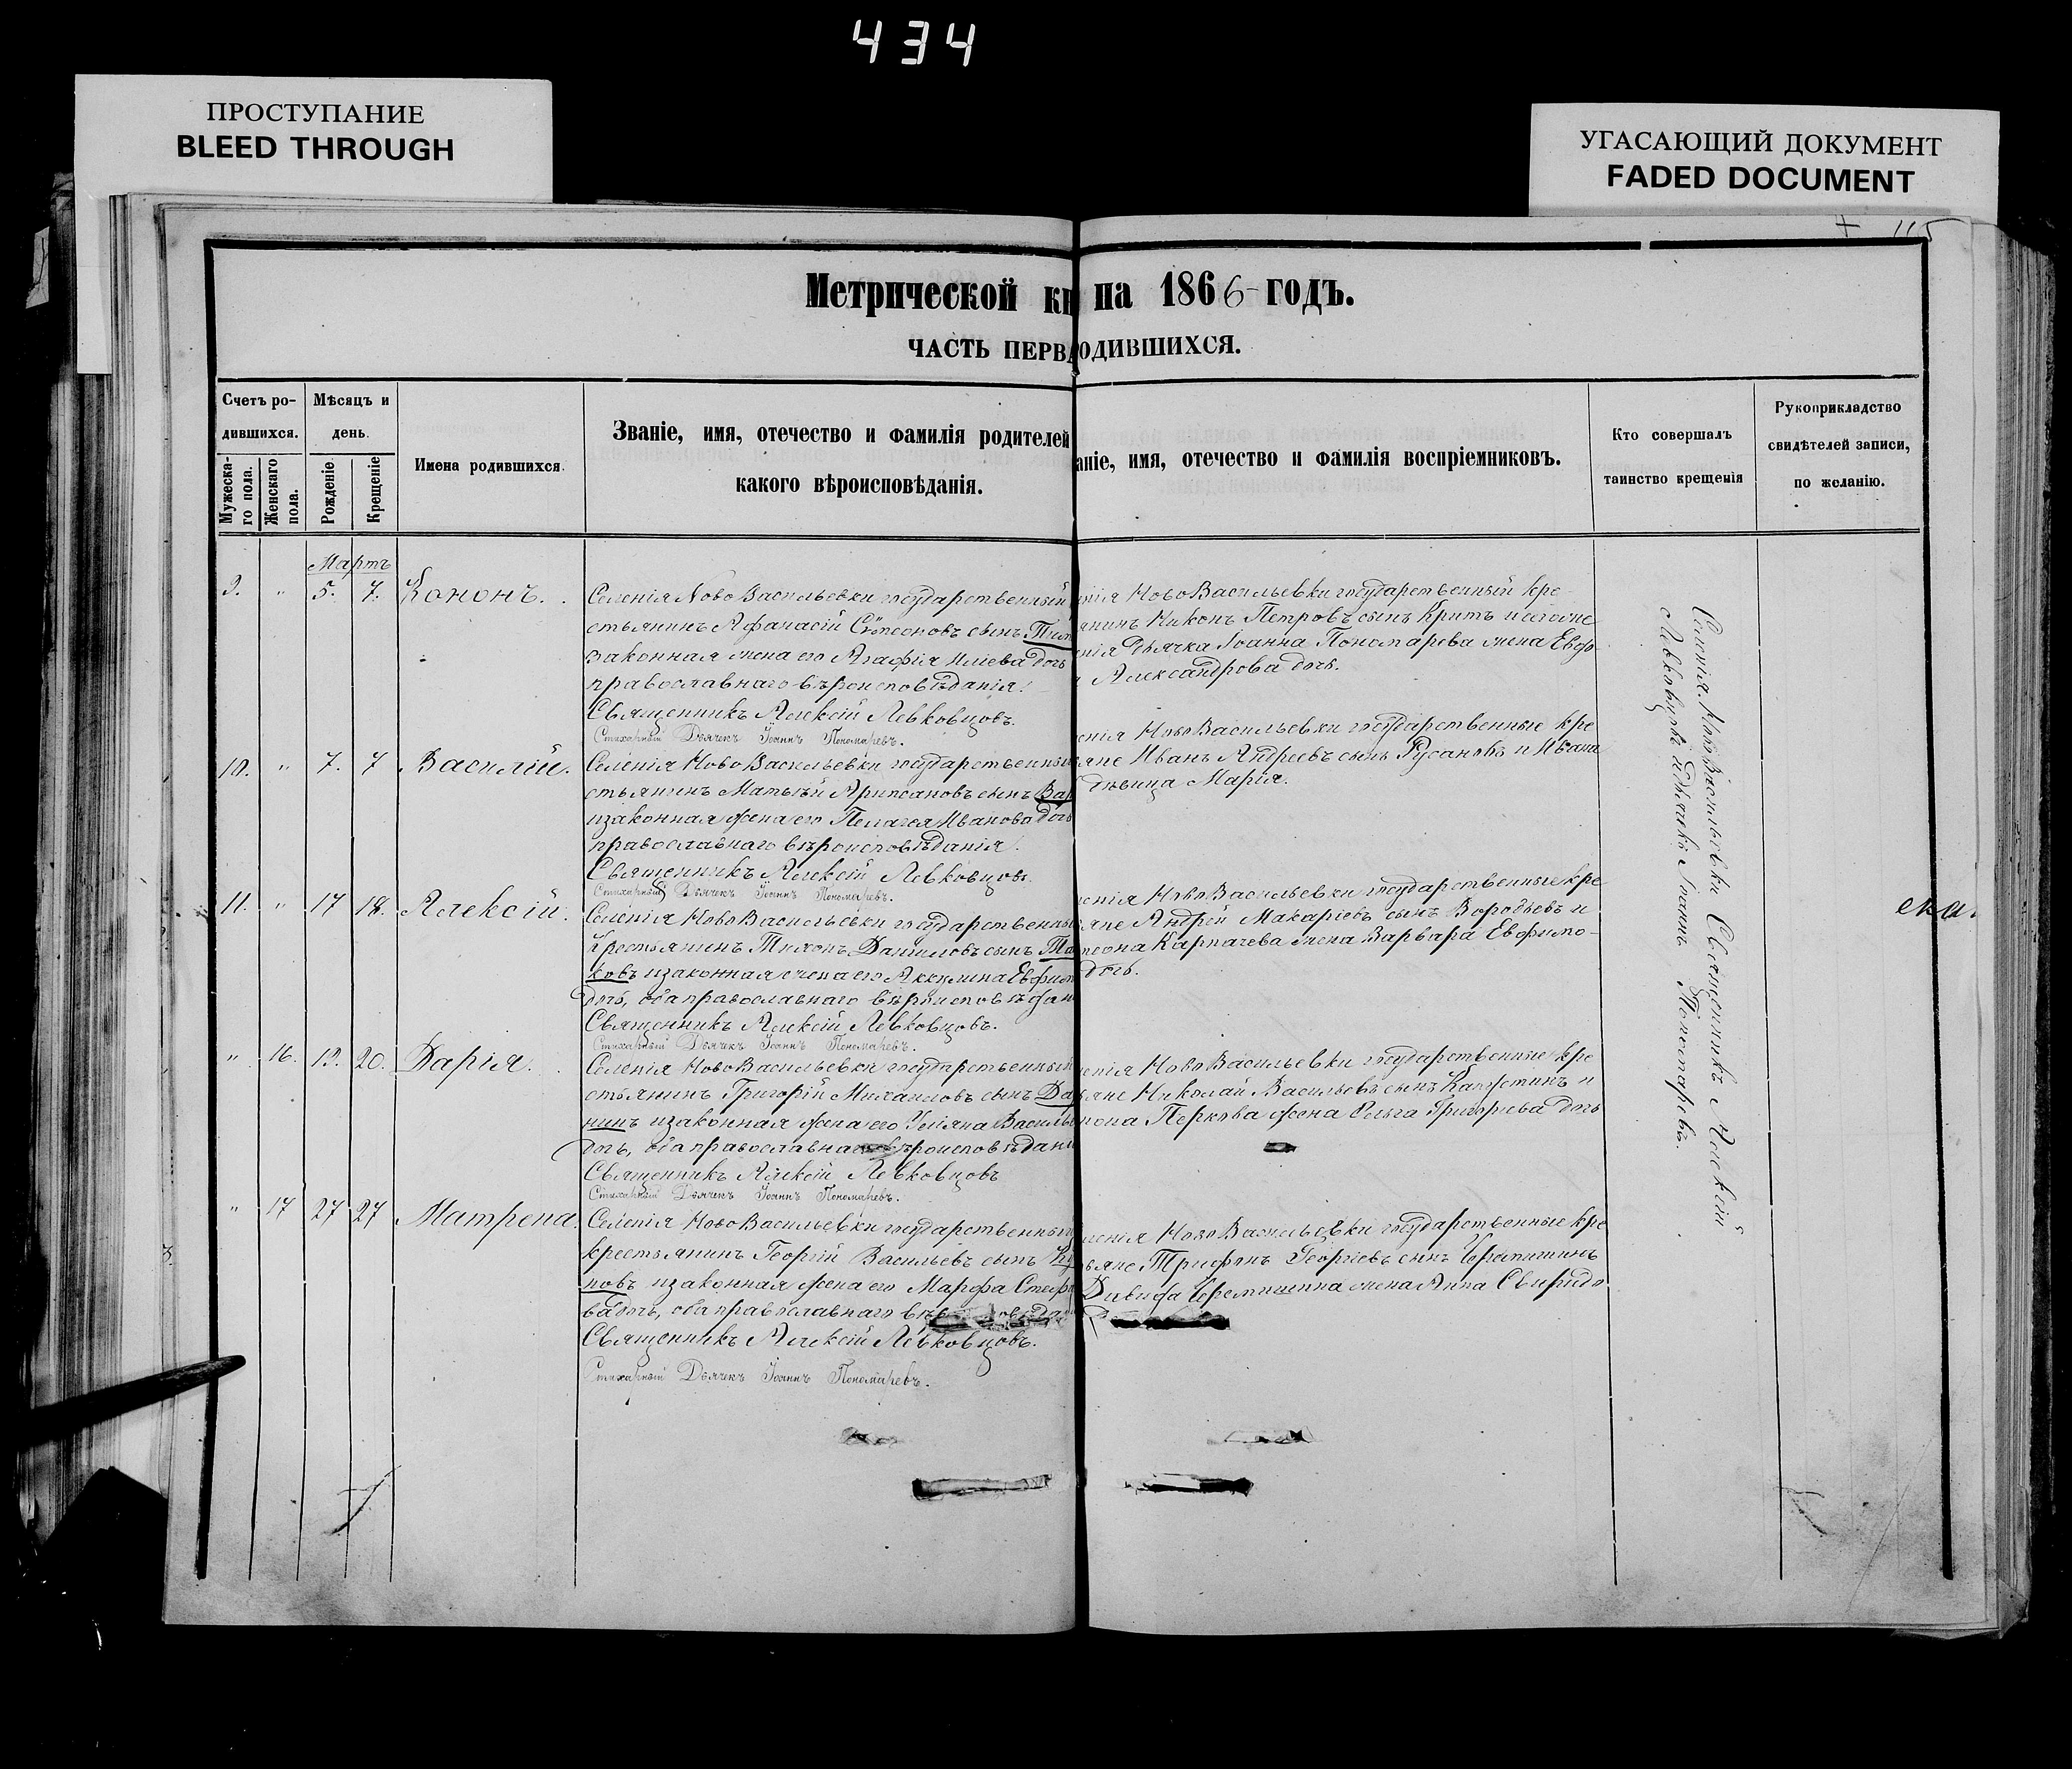 434
ПРОСТУПАНИЕ
BLEED THROUGH
УГАСАЮЩИЙ ДОКУМЕНТ
FADED DOCUMENT
115
Метрической кн на 1866 годъ.
ЧАСТЬ ПЕРВ ОДИВШИХСЯ.
Счетъ ро-
дившихся.
Мужеска-
го пола.
Женскаго
пола.
Мѣсяцъ и
день.
Рожденіе.
Крещеніе
Имена родившихся.
Званіе, имя, отечество и фамилія родителей
какого вѣроисповѣданія.
аніе, имя, отечество и фамилія воспріемниковъ.
Кто совершалъ
таинство крещенія
Рукоприкладство
свидѣтелей записи,
по желанію.
Мартъ
9. " 5. 7. Кононъ.
Селенія Ново Васильевки государственный
стьянинъ Афанасій Симеоновъ сынъ Тим
законная жена его Агафія Иліева дочь
православнаго вѣроисповѣданія.
Священникъ Алексій Левковцовъ.
Стихарный Дьячекъ Іоаннъ Пономаревъ.
енія Ново Васильевки государственный кре-
янинъ Никонъ Петровъ сынъ Критъ и
енія дьячка Іоанна Пономарева жена Евфо-
Александрова дочь.
10. " 7. 7 Василій.
Селенія Ново Васильевки государственный
стьянинъ Матвѣй сынъ Вар
и законная жена его Пелагея Иванова дочь
православнаго вѣроисповѣданія.
Священникъ Алексій Левковцовъ.
Стихарный Дьячекъ Іоаннъ Пономаревъ.
енія Ново Васильевки государственные кре
яне Иванъ Андреевъ сынъ Русановъ и Ивана
дѣвица Марія.
11. " 17 18. Алексій.
Селенія Ново Васильевки государственный
крестьянинъ Тихонъ Даниловъ сынъ
ковъ и законная жена его Акилина Евфим
дочь, оба православнаго вѣроисповѣдан
Священникъ Алексій Левковцовъ.
Стихарный Дьячекъ Іоаннъ Пономаревъ.
енія Ново Васильевки государственные кре
яне Андрей Макаріевъ сынъ Воробьевъ и
меона Карпачева жена Варвара Евфимо-
дочь.
ека.
" 16. 19. 20. Дарія.
Селенія Ново Васильевки государственный
стьянинъ Григорій Михаиловъ сынъ
нинъ и законная жена его Уліяна Василь
дочь, оба православнаго вѣроисповѣдан
Священникъ Алексій Левковцовъ
Стихарный Дьячекъ Іоаннъ Пономаревъ.
енія Ново Васильевки государственные кре
ьяне Николай Васильевъ сынъ Капустинъ и
Перкова жена Ольга Григорьева дочь
" 17 27 27 Матрена.
Селенія Ново Васильевки государственный
крестьянинъ Георгій Васильевъ сынъ
новъ и законная жена его Марфа Стеф
ва дочь, оба православнаго
Священникъ Алексій Левковцовъ.
Стихарный Дьячекъ Іоаннъ Пономаревъ.
енія Ново Васильевки государственные кре
ьяне Трифонъ Георгіевъ сынъ Черемишинъ
Давида Черемишина жена Анна Свиридо
Селенія Ново Васильевки Священникъ Алексій
Левковцовъ и Дьячекъ Іоаннъ Пономаревъ.